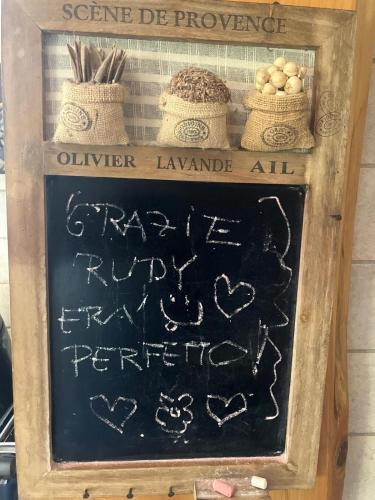 SCÈNE DE PROVENCE
OLIVIER LAVANDE AIL
GRAZIE
RUDY
ERA'
PERFETTO!